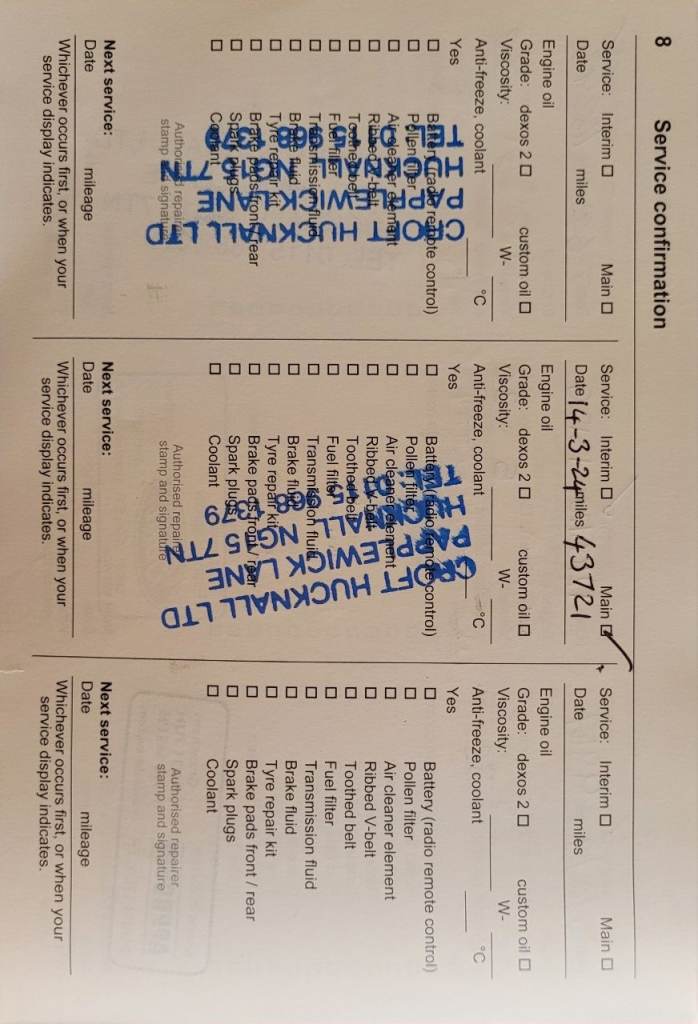 8 Service confirmation
Service: Interim ☐ Main ☐
Date miles
Engine oil
Grade: dexos 2 ☐ custom oil ☐
Viscosity: W-
Anti-freeze, coolant °C
Yes
☐ Battery (radio remote control)
☐ Pollen filter
☐ Air cleaner element
☐ Ribbed V-belt
☐ Toothed belt
☐ Fuel filter
☐ Transmission fluid
☐ Brake fluid
☐ Tyre repair kit
☐ Brake pads front / rear
☐ Spark plugs
☐ Coolant
CROFT HUCKNALL LTD
PAPPLEWICK LANE
HUCKNALL NG15 7TN
TEL
Authorised repairer
stamp and signature
Next service:
Date mileage
Whichever occurs first, or when your
service display indicates.
Service: Interim ☐ Main ☑
Date 14-3-24 miles 43721
Engine oil
Grade: dexos 2 ☐ custom oil ☐
Viscosity: W-
Anti-freeze, coolant °C
Yes
☐ Battery (radio remote control)
☐ Pollen filter
☐ Air cleaner element
☐ Ribbed V-belt
☐ Toothed belt
☐ Fuel filter
☐ Transmission fluid
☐ Brake fluid
☐ Tyre repair kit
☐ Brake pads front / rear
☐ Spark plugs
☐ Coolant
CROFT HUCKNALL LTD
PAPPLEWICK LANE
HUCKNALL NG15 7TN
TEL
Authorised repairer
stamp and signature
Next service:
Date mileage
Whichever occurs first, or when your
service display indicates.
Service: Interim ☐ Main ☐
Date miles
Engine oil
Grade: dexos 2 ☐ custom oil ☐
Viscosity: W-
Anti-freeze, coolant °C
Yes
☐ Battery (radio remote control)
☐ Pollen filter
☐ Air cleaner element
☐ Ribbed V-belt
☐ Toothed belt
☐ Fuel filter
☐ Transmission fluid
☐ Brake fluid
☐ Tyre repair kit
☐ Brake pads front / rear
☐ Spark plugs
☐ Coolant
Authorised repairer
stamp and signature
Next service:
Date mileage
Whichever occurs first, or when your
service display indicates.